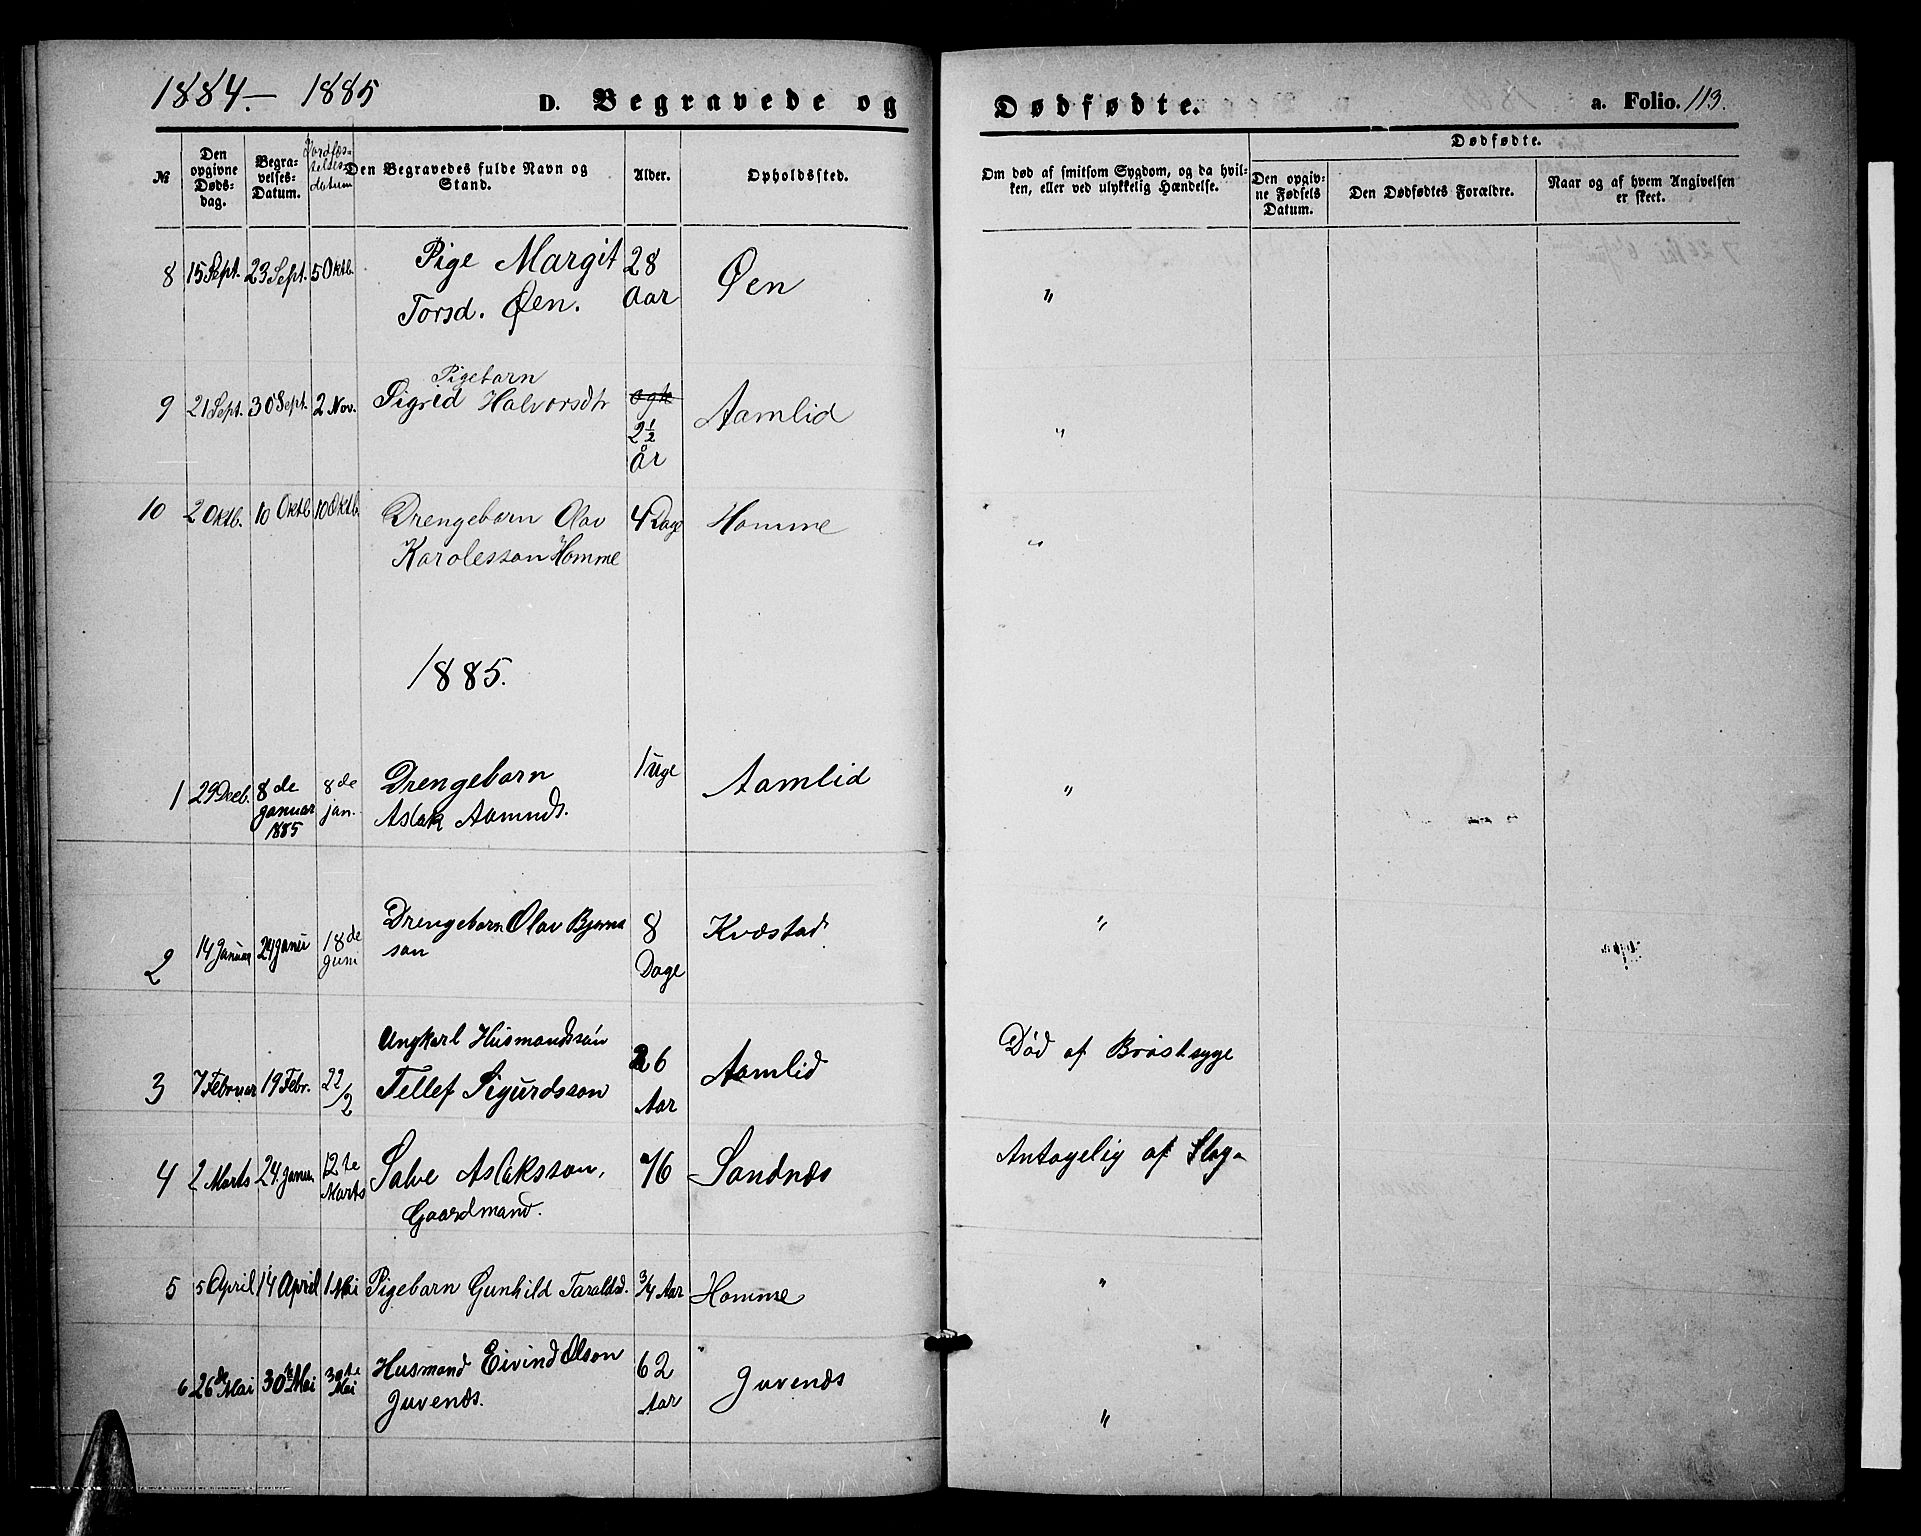 1884.— 1885 D. Begravede og Dødfødte. a. Folio. 113.
№ Den opgivne Døds-dag. Begra-velses-Datum. Jordfæs-telses-datum Den Begravedes fulde Navn og Stand. Alder. Opholdssted. Om død af smitsom Sygdom, og da hvil-ken, eller ved ulykkelig Hændelse. Dødfødte. Den opgiv-ne Fødsels Datum. Den Dødfødtes Forældre. Naar og af hvem Angivelsen er skeet.
8 15 Sept. 23 Sept. 5 Oktb. Pige Margit 28 Øen "
Torsd. Øen. Aar
Pigebarn
9 21 Sept. 30 Sept. 2 Nov. Sigrid Halvorsdtr Aamlid "
2½
år
10 2 Oktb. 10 Oktb 10 Oktb. Drengebarn Olav 4 Dage Homme "
Karolesson Homme
1885.
1 29 Decb. 8de 8de Drengebarn 1 Uge Aamlid "
januar jan. Aslak Aamunds.
1885
2 14 Januar 24 Janu 18de Drengebarn Olav Bjørns 8 Kvæstad "
Juni son Dage
Ungkarl Husmandssøn
3 7 Februar 19 Febr. 22/2 Tellef Sigurdsson 26 Aamlid Død af Brøstsyge
Aar
4 2 Marts 24. Januar 12te Salve Aslaksson, 76 Sandnæs Antagelig af Slag
Marts Gaardmand.
5 5 April 14 April 1 Mai Pigebarn Gunhild Taraldsd. ¾ Aar Homme "
6 26de Mai 30te Mai 30te Husmand Eivind Olson 62 Juvenæs
Mai Juvenæs. Aar "